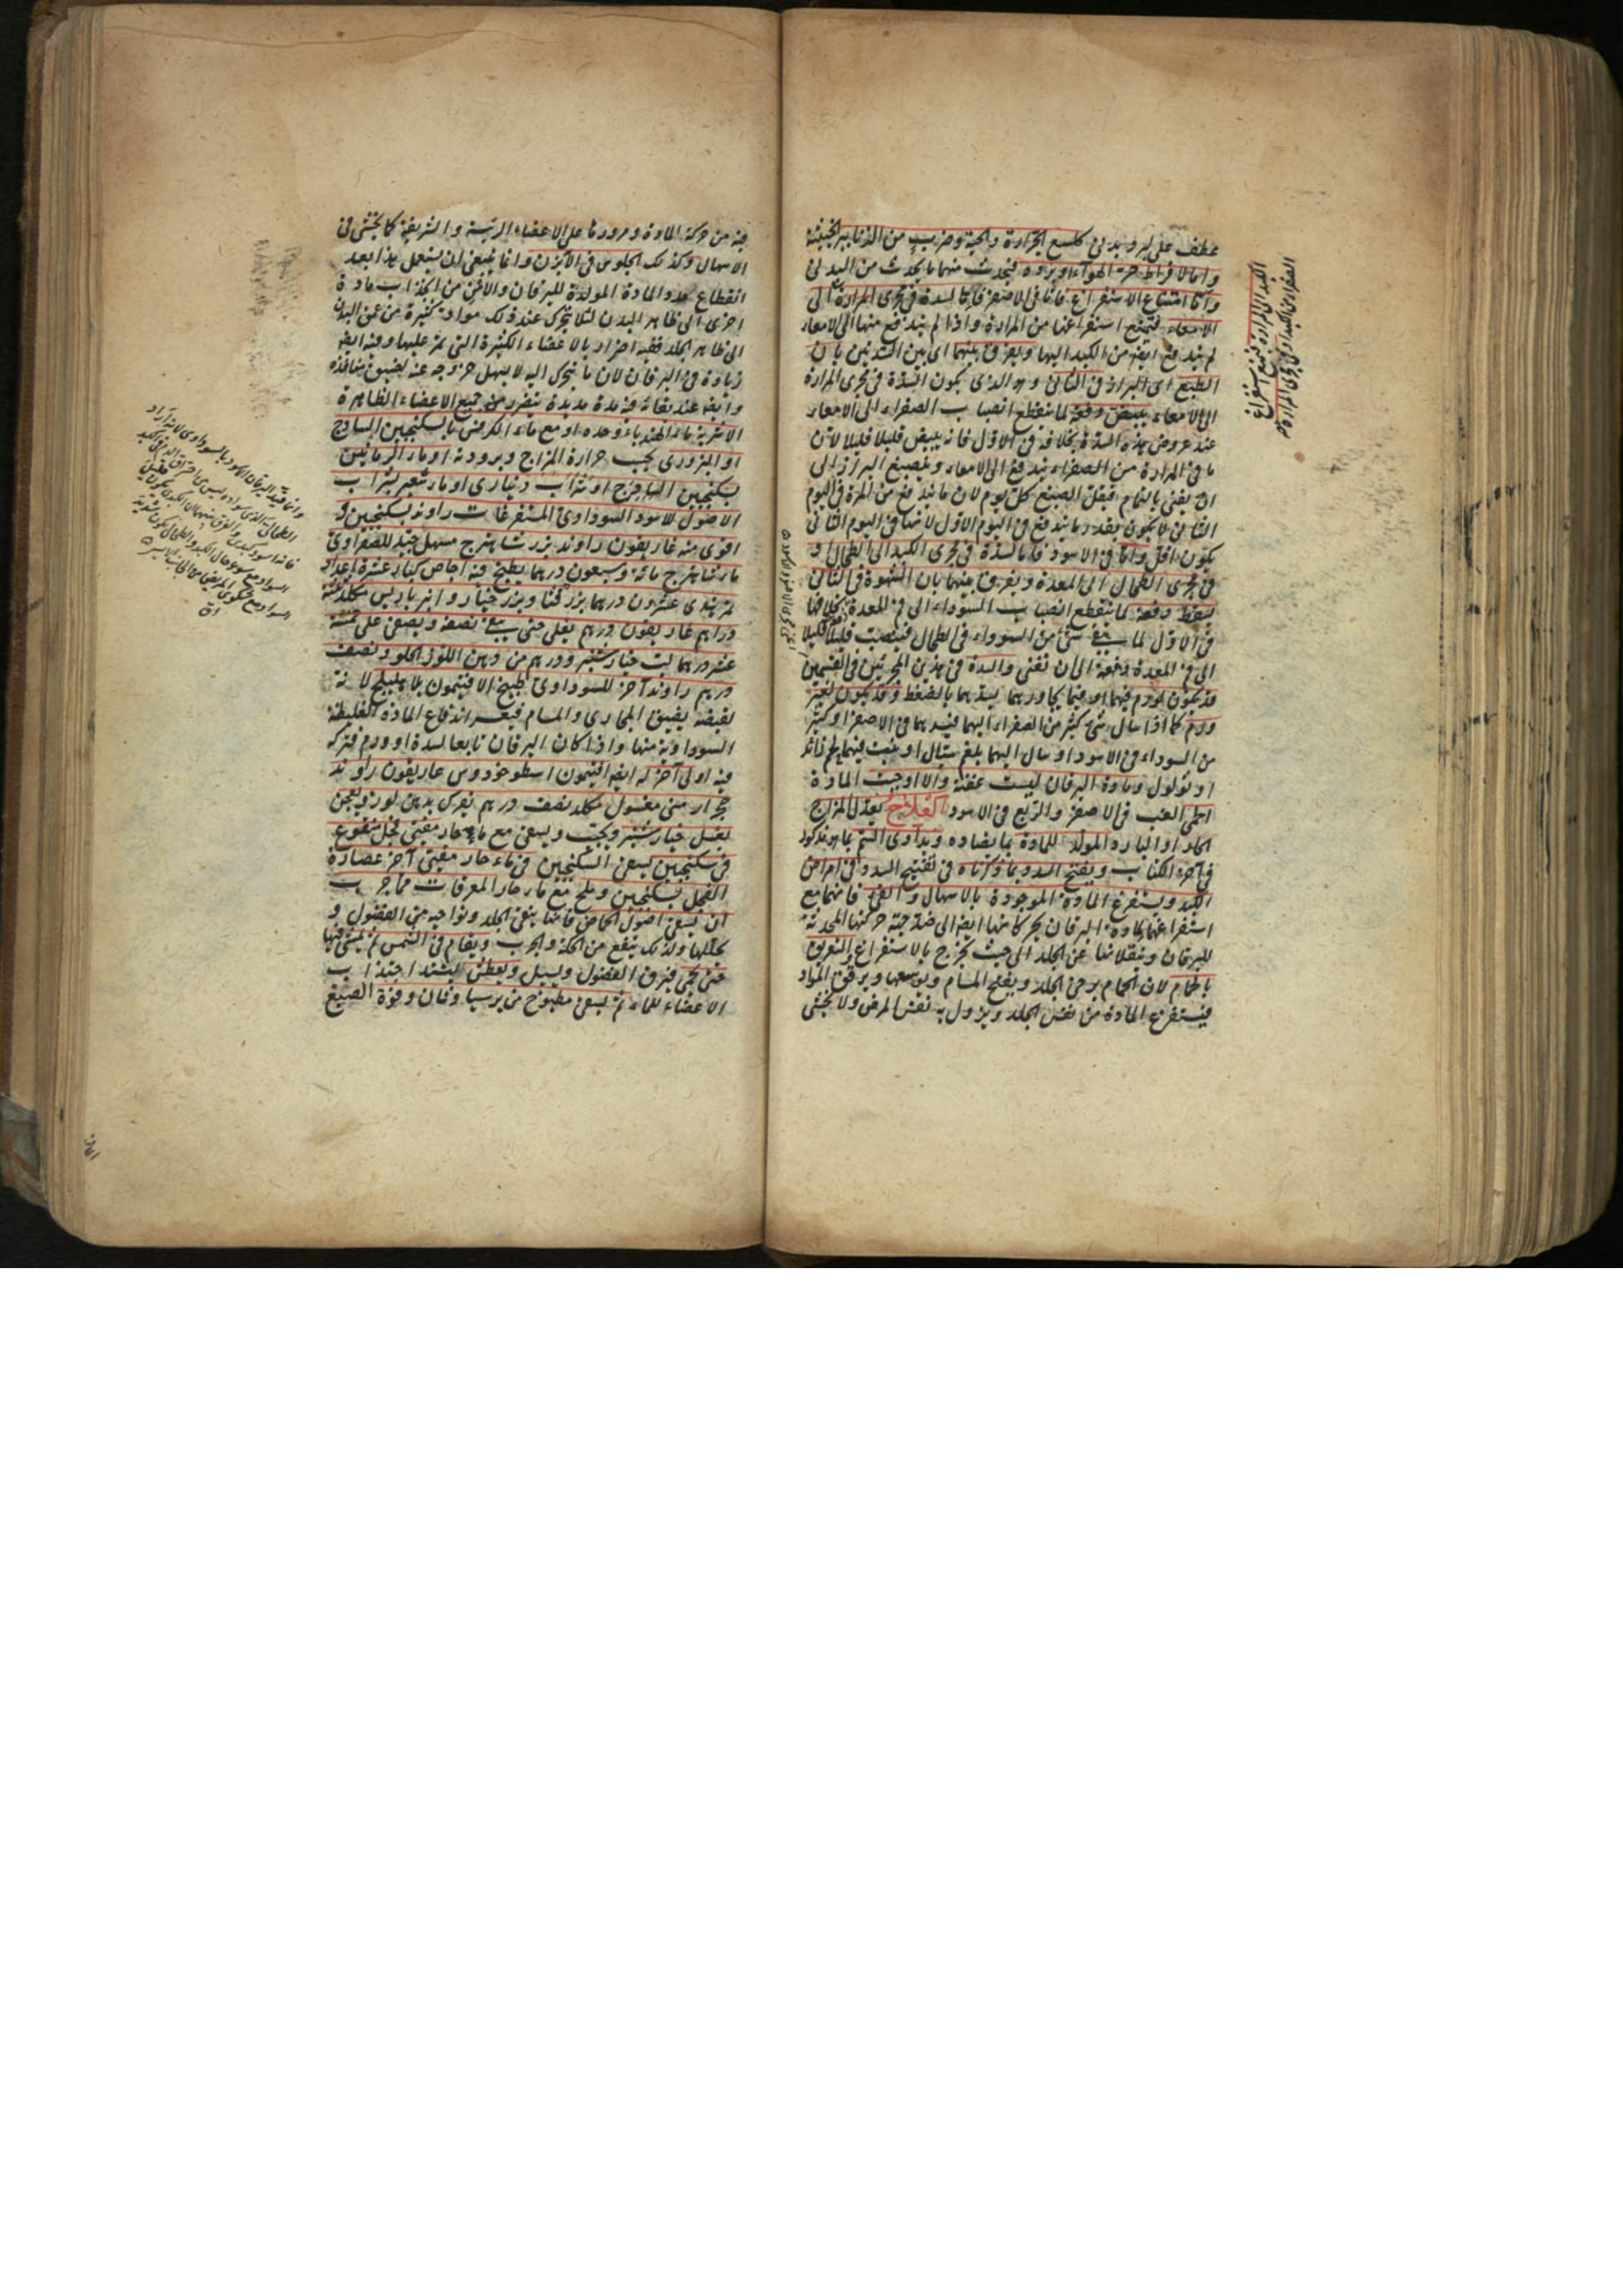 عطف على برد بدني كلسع الجرارة والحية وضرب من الذنابير الخبيثة
واما لافراط حر الهواء او برده فيحدث منهما ما يحدث من البدني
واما امتناع الاستفراغ فاما في الاصفر فاما لسدة في مجرى المرارة الى
الامعاء فيمتنع استفراغها من المرارة واذا لم يندفع منها الى الامعاء
لم يندفع ايضا من الكبد اليها ويعرف بينهما اى بين السدتين بان
الطبع اى البراز فى الثانى وهو الذى يكون السدة فى مجرى المرارة
الى الامعاء يبيض دفعة لما ينقطع انصباب الصفراء الى الامعاء
عند عروض هذه السدة بخلافه فى الاول فانه يبيض قليلا قليلا لان
ما فى المرارة من الصفراء يندفع الى الامعاء وينصبغ البراز الى
ان يفنى بالتمام فيقل الصبغ كل يوم لان ما يندفع من المرة فى اليوم
الثانى لا يكون بقدر ما يندفع فى اليوم الاول لانها فى اليوم الثانى
يكون اقل واما فى الاسود فاما لسدة فى مجرى الكبد الى الطحال او
فى مجرى الطحال الى المعدة ويفرق بينهما بان الشهوة فى الثانى
يسقط دفعة لما ينقطع انصباب السوداء الى فم المعدة بخلافها
فى الاول لما يبقى شئ من السوداء فى الطحال فينصب قليلا قليلا
الى فم المعدة دفعة الى ان تفنى والسدة فى هذين المجريين فى القسمين
قد يكون لورم فيهما او فيما يجاورهما يسدهما بالضغط وقد يكون لغير
ورم كما اذا سال شئ كثير من الصفراء اليهما فيسدهما فى الاصفر او كثير
من السوداء فى الاسود او سال اليهما بلغم سيال او ينبت فيهما لحم زائد
او ثؤلول ومادة اليرقان ليست عفنة والا اوجبت المادة
الحمى الغب فى الاصفر والربع فى الاسود العلاج يعدل المزاج
الحار او البارد المولد للمادة بما يضاده ويداوى السم بما هو مذكور
فى آخر الكتاب ويفتح السدد بما ذكرناه فى تفتيح السدد فى امراض
الكبد ويستفرغ المادة الموجودة بالاسهال والقئ فانهما مع
استفراغهما لمادة اليرقان يحركانها ايضا الى ضد جهة حركتها المحدثة
لليرقان وينقلانها عن الجلد الى حيث يخرج بالاستفراغ والتعريق
بالحمام لان الحمام يرخى الجلد ويفتح المسام ويوسعها ويرقق المواد
فيستفرغ المادة من نفس الجلد ويزول به نفس المرض ولا يخشى
الكبد الى المرارة فيمتنع استفراغ
الصفراء من الكبد او فى مجرى المرارة
فيه من حركة المادة ومرورها على الاعضاء الرئيسة والشريفة كما يخشى فى
الاسهال وكذلك الجلوس فى الابزن وانما ينبغى ان يستعمل هذا بعد
انقطاع مدد المادة المولدة لليرقان والامن من انجذاب مادة
اخرى الى ظاهر البدن لئلا يتحرك عند ذلك مواد كثيرة من عمق البدن
الى ظاهر الجلد ففيه اضرار بالاعضاء الكثيرة التى تمر عليها وفيه ايضا
زيادة فى اليرقان لان ما يتحرك اليه لا يسهل خروجه عنه لضيق منافذه
وايضا عند بقائه فيه مدة مديدة يتضرر منه جميع الاعضاء الظاهرة
الاشربة ماء الهندباء وحده او مع ماء الكرفس بالسكنجبين الساذج
او البزورى بحسب حرارة المزاج وبرودته او ماء الرمانين
بسكنجبين السفرجلى او شراب دينارى او ماء شعير بشراب
الاصول للاسود السوداوى المستفرغات راوند بسكنجبين و
اقوى منه غاريقون راوند بزر شاهترج مسهل جيد للصفراوى
ماء شاهترج مائة وسبعون درهما يطبخ فيه اجاص كبار عشرة اعداد
تمر هندى عشرون درهما بزر قثا وبزر خيار وانبرباريس مكد ثلثة
دراهم غاريقون درهم يغلى حتى يبقى نصفه ويصفى على خمسة
عشر درهما لب خيار شنبر ودرهم من دهن اللوز الحلو ونصف
درهم راوند آخر للسوداوى طبيخ الافتيمون بلا هليلج لانه
بقبضه يضيق المجارى والمسام فيعسر اندفاع المادة الغليظة
السوداوية منها واذا كان اليرقان تابعا لسدة او ورم فتركه
فيه اولى آخر له ايضا افتيمون اسطوخودوس غاريقون راوند
حجر ارمنى مغسول مكد نصف درهم يفرك بدهن لوز ويعجن
بعسل خيار شنبر ويحبب ويسقى مع ماء حار مقيئ فجل منقوع
فى سكنجبين يسقى السكنجبين فى ماء حار مقيئ آخر عصارة
الفجل بسكنجبين وملح مع ماء حار المعرقات مما جرب
ان يسقى اصول الحماض فانها ينقى الجلد ونواحيه من الفضول و
يحللها ولذلك ينفع من الحكة والجرب ويقام فى الشمس ثم يمشى فيها
حتى يحمى فيرق الفضول ويسيل ويعطش ليشتد اجتذاب
الاعضاء للماء ثم يسقى مطبوخ من برسياوشان وفوة الصبغ